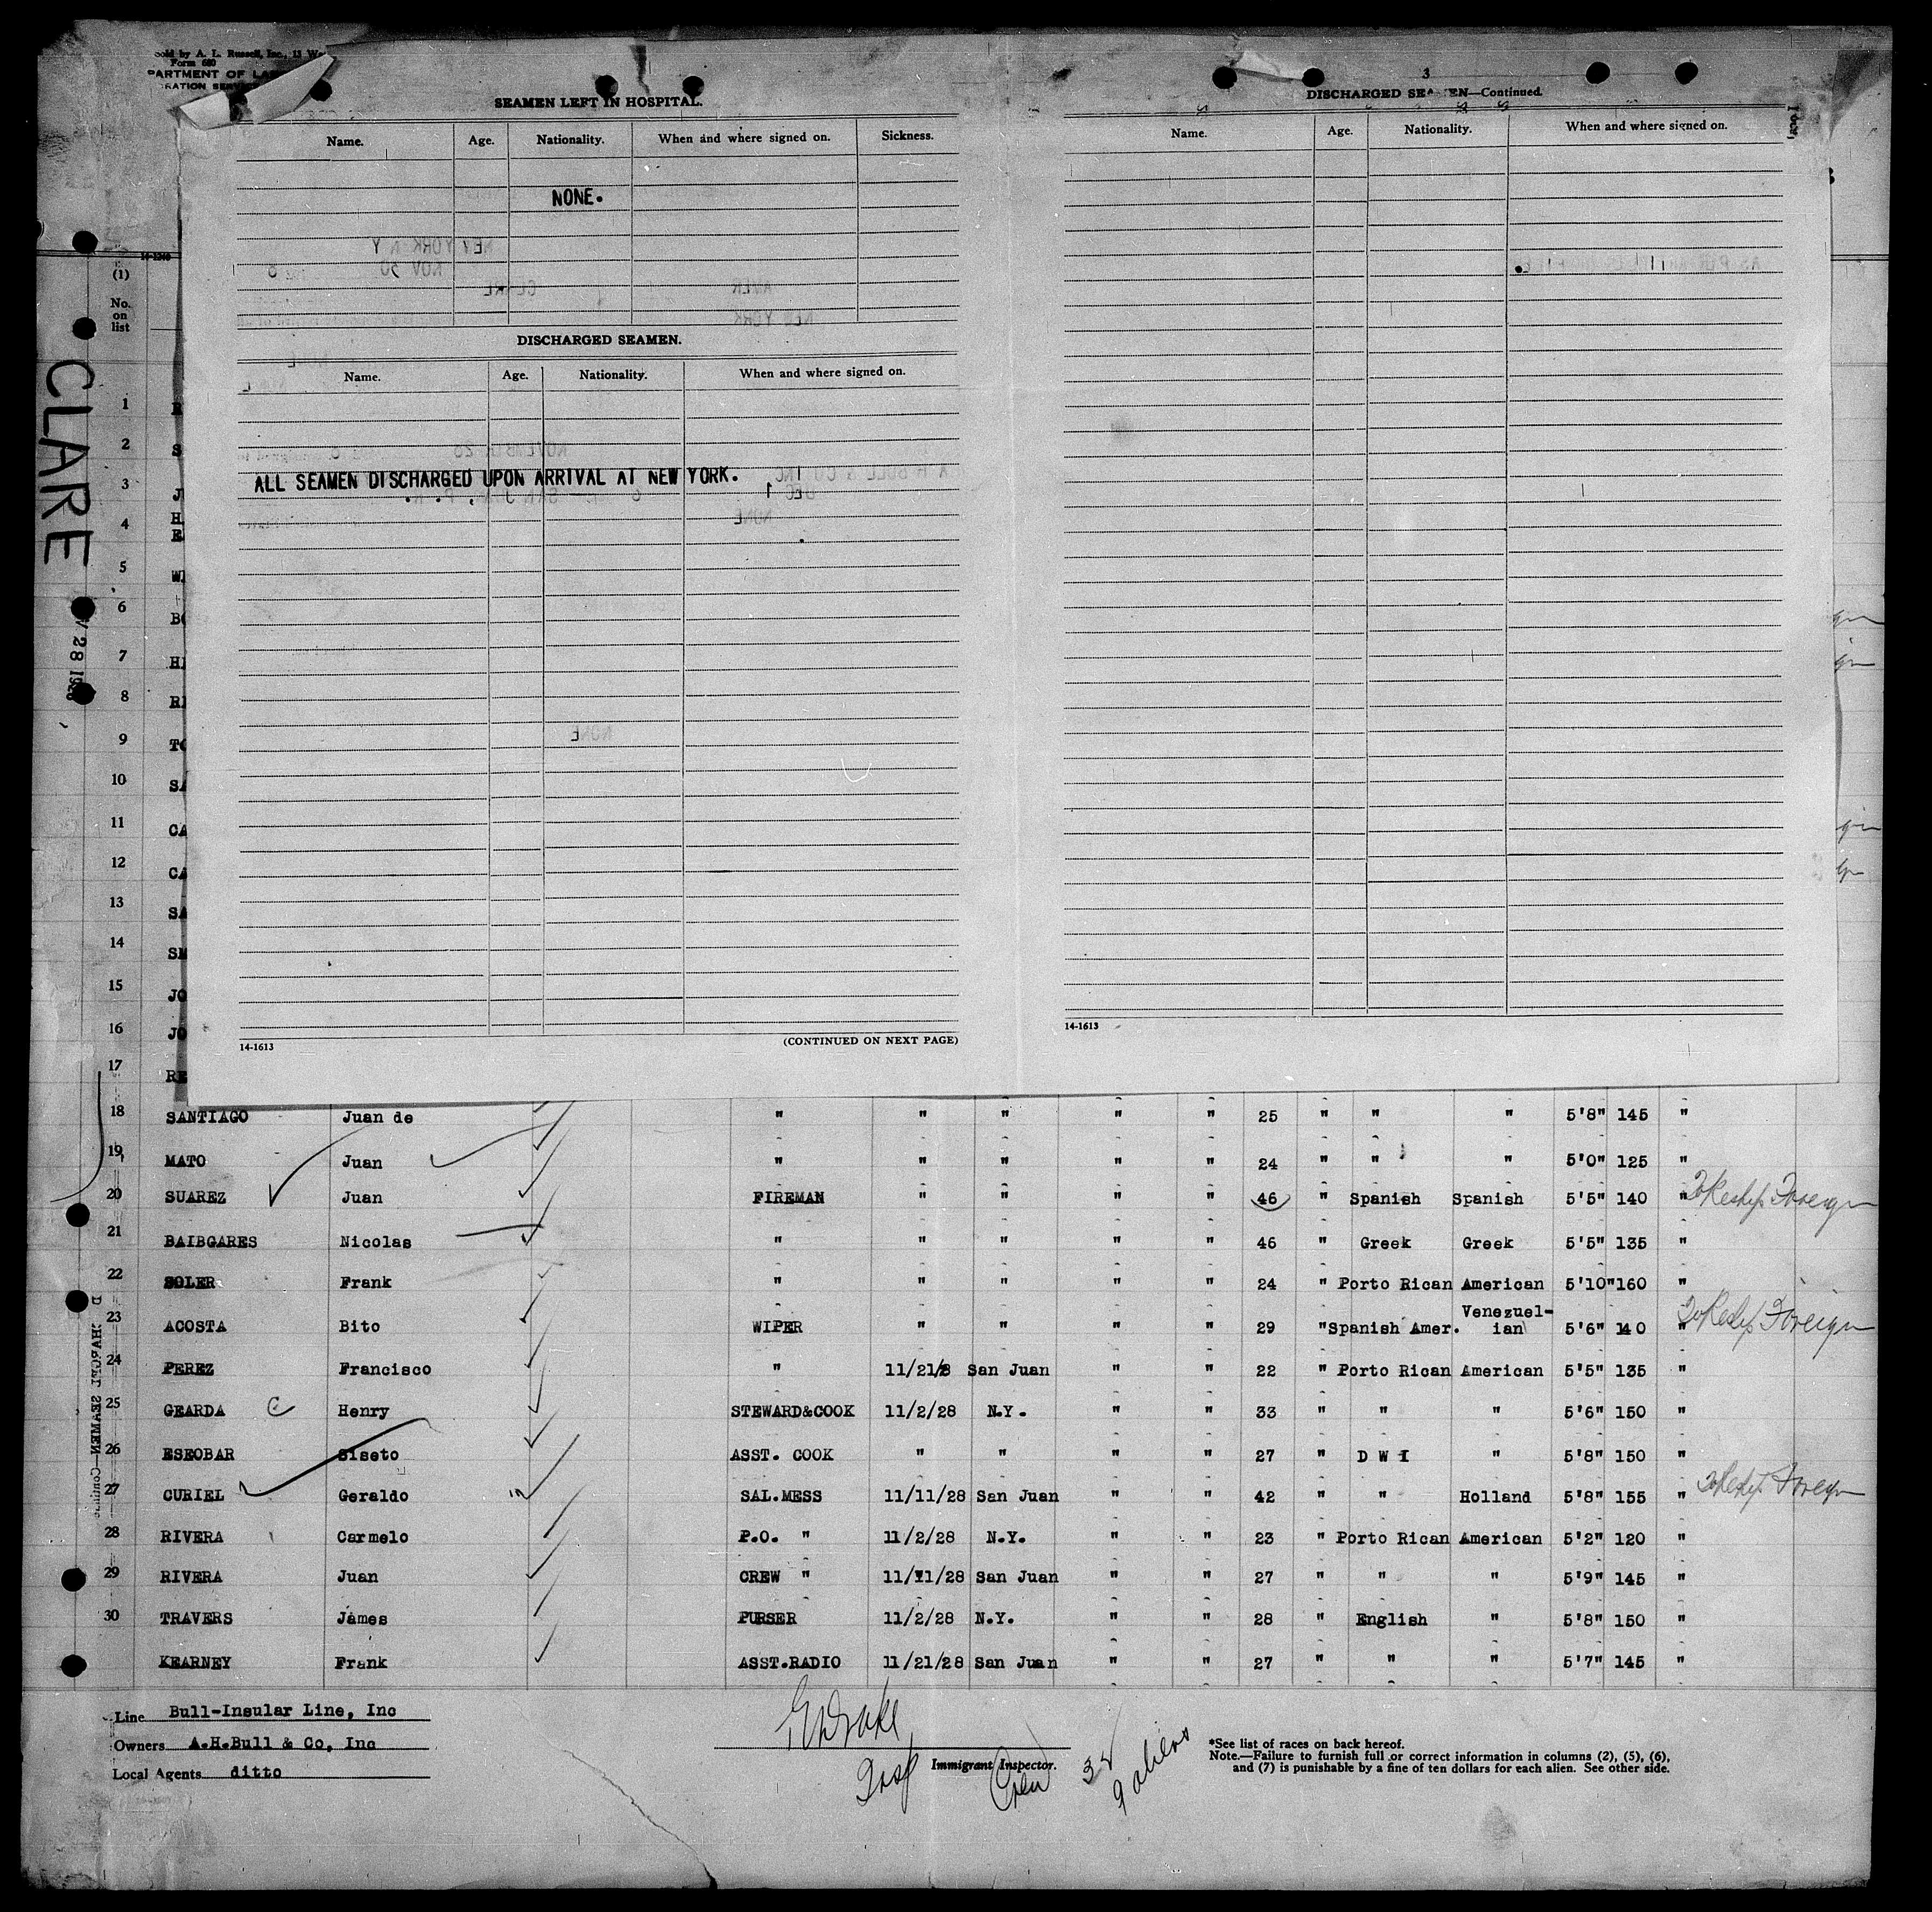 Sold by A. L. Russell, Inc., 13
Form 680
SEAMEN LEFT IN HOSPITAL.
Name. Age. Nationality. When and where signed on. Sickness.
NONE.
DISCHARGED SEAMEN.
Name. Age. Nationality. When and where signed on.
ALL SEAMEN DISCHARGED UPON ARRIVAL AT NEW YORK.
14-1613 (CONTINUED ON NEXT PAGE)
3
DISCHARGED SEAMEN—Continued.
Name. Age. Nationality. When and where signed on.
14-1613
14-1240
(1)
No.
on
list
CLARE
28 1928
1
2
3
4
5
6
7
8
9
10
11
12
13
14
15
16
17
18 SANTIAGO Juan de " " " " " 25 " " " 5'8" 145 "
19 MATO Juan " " " " " 24 " " " 5'0" 125 "
20 SUAREZ Juan FIREMAN " " " " 46 " Spanish Spanish 5'5" 140 " Foreign
21 BAIBGARES Nicolas " " " " " 46 " Greek Greek 5'5" 135 "
22 SOLER Frank " " " " " 24 " Porto Rican American 5'10" 160 "
23 ACOSTA Bito WIPER " " " " 29 " Spanish Amer. Venezuel-
ian 5'6" 140 " Foreign
24 PEREZ Francisco " 11/21/8 San Juan " " 22 " Porto Rican American 5'5" 135 "
25 GEARDA C Henry STEWARD&COOK 11/2/28 N.Y. " " 33 " " " 5'6" 150 "
26 ESEOBAR Siseto ASST. COOK " " " " 27 " D W I " 5'8" 150 "
27 CURIEL Geraldo SAL.MESS 11/11/28 San Juan " " 42 " " Holland 5'8" 155 " Foreign
28 RIVERA Carmelo P.O. " 11/2/28 N.Y. " " 23 " Porto Rican American 5'2" 120 "
29 RIVERA Juan CREW " 11/11/28 San Juan " " 27 " " " 5'9" 145 "
30 TRAVERS James PURSER 11/2/28 N.Y. " " 28 " English " 5'8" 150 "
KEARNEY Frank ASST.RADIO 11/21/28 San Juan " " 27 " " " 5'7" 145 "
Line Bull-Insular Line, Inc
Owners A.H.Bull & Co, Inc
Local Agents ditto
Immigrant Inspector.
Crew 32
9 aliens
*See list of races on back hereof.
Note.—Failure to furnish full or correct information in columns (2), (5), (6),
and (7) is punishable by a fine of ten dollars for each alien. See other side.